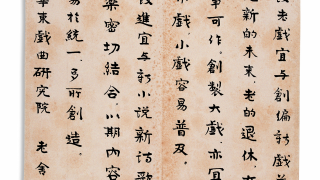 老戲宜与創編新戲並
老新的未來,老的退休,
事可作。創製大戲,亦宜
戲小戲容易普及。
後進宜与新小說新詩歌
樂密切結合,以期內容
易於統一,多所創造。
華東戲曲研究院 老舍